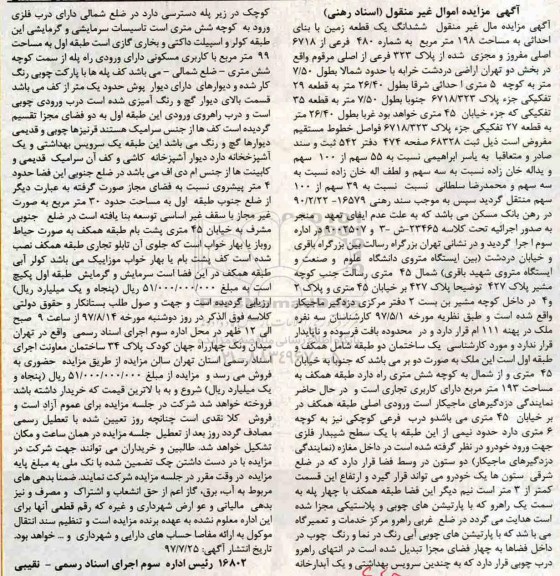 آگهی مزایده اموال غیر منقول (اسناد رهنی)
آگهی مزایده مال غیر منقول ششدانگ یک قطعه زمین با بنای
احداثی به مساحت ۱۹۸ متر مربع به شماره ۴۸۰ فرعی از ۶۷۱۸
اصلی مفروز و مجزی شده از پلاک ۳۲۳ فرعی از اصلی مرقوم واقع
در بخش دو تهران اراضی دردشت خرابه با حدود شمالا بطول ۷/۵۰
متر به کوچه ۵ متری احداثی شرقا بطول ۲۶/۴۰ متر به قطعه ۲۹
تفکیکی جزء پلاک ۶۷۱۸/۳۲۳ جنوبا بطول ۷/۵۰ متر به قطعه ۳۵
تفکیکی که جزء خیابان ۴۵ متری خواهد بود غربا بطول ۲۶/۴۰ متر
به قطعه ۲۷ تفکیکی جزء پلاک ۶۷۱۸/۳۲۳ فواصل خطوط مستقیم
مفروض است ذیل ثبت ۶۸۳۲۸ صفحه ۴۷۴ دفتر ۵۴۲ ثبت و سند
صادر و متعاقبا به یاسر ابراهیمی نسبت به ۵۵ سهم از ۱۰۰ سهم
و یداله خان زاده نسبت به سه سهم و لطف اله خان زاده نسبت به
سه سهم و محمدرضا سلطانی نسبت به ۳۹ سهم از ۱۰۰
سهم منتقل گردید سپس به موجب سند رهنی ۱۶۵۷۹- ۹۰/۲/۲۲
در رهن بانک مسکن می باشد که به علت عدم ایفای تعهد منجر
به صدور اجرائیه تحت کلاسه ۲۳۴۶۵-ش -۳ و ۹۶۰۱۵۰۷ در اداره
سوم اجرا گردید و در نشانی تهران بزرگراه رسالت بین بزرگراه باقری
و خیابان دردشت (بین ایستگاه متروی دانشگاه علوم و صنعت و
ایستگاه متروی شهید باقری) شمال ۴۵ متری رسالت جنب کوچه
مشیر پلاک ۴۲۷ توضیحا پلاک ۴۲۷ بر خیابان ۴۵ متری و پلاک ۲
و۴ در داخل کوچه مشیر بن بست ۲ دفتر مرکزی دزدگیر ماجیکار
واقع شده است و طبق نظریه مورخه ۹۷/۵/۱ کارشناسان سه نفره
ملک در پهنه ۱۱۱ ام قرار دارد و در محدوده بافت فرسوده و ناپایدار
قرار ندارد و مورد کارشناسی یک ساختمان دو طبقه شامل همکف و
طبقه اول است این ملک به صورت دو بر می باشد که جنوبا به خیابان
۴۵ متری و از شمال به کوچه شش متری راه دارد طبقه همکف به
مساحت ۱۹۳ متر مربع دارای کاربری تجاری است و در حال حاضر
نمایندگی دزدگیرهای ماجیکار است ورودی اصلی طبقه همکف در
بر خیابان ۴۵ متری می باشدو درب فرعی کوچکی نیز به کوچه
۶ متری دارد حدود نیمی از این طبقه با یک سطح شیبدار فلزی
جهت ورود خودرو در نظر گرفته شده است در داخل مغازه (نمایندگی
دزدگیرهای ماجیکار) دو ستون در وسط فضا قرار دارد که در ضلع
شرقی ستون ها یک خودرو می تواند قرار گیرد و ارتفاع این قسمت
کمتر از ۳ متر است نیم دیگر این فضا طبقه همکف با چهار پله به
سمت یک راهرو که با پارتیشن های چوبی و پلاستیکی مجزا شده
است هدایت می گردد در ضلع غربی راهرو مرکز خدمات و تعمیرگاه
می باشد که با پارتیشن های چوبی آبی رنگ در نما و رنگ چوب در
داخل فضاها به چهار فضای مجزا تبدیل شده است در انتهای راهرو
درب چوبی قرار دارد که به چندین سرویس بهداشتی و یک آبدارخانه
کوچک در زیر پله دسترسی دارد در ضلع شمالی دارای درب فلزی
ورود به کوچه شش متری است تاسیسات سرمایشی و گرمایشی این
طبقه کولر و اسپیلت داکتی و بخاری گازی است طبقه اول به مساحت
۹۹ متر مربع با کاربری مسکونی دارای ورودی راه پله از سمت کوچه
شش متری – ضلع شمالی – می باشد کف پله ها با پارکت چوبی رنگ
کار شده و دیوارهای دارای دیوار پوش حدود یک متر از کف می باشد
قسمت بالای دیوار گچ و رنگ آمیزی شده است درب ورودی چوبی
است و درب راهروی ورودی این طبقه اول به دو فضای مجزا تقسیم
گردیده است کف ها از جنس سرامیک هستند قرنیزها چوبی و قدیمی
دیوارها گچ و رنگ می باشد این طبقه یک سرویس بهداشتی و یک
آشپزخانه دارد دیوار آشپزخانه کاشی و کف آن سرامیک قدیمی و
کابینت ها از جنس ام دی اف می باشد در ضلع جنوبی این فضا حدود
۴ متر پیشروی نسبت به فضای مجاز صورت گرفته به عبارت دیگر
از ضلع جنوب طبقه اول به مساحت حدود ۳۰ متر مربع به صورت
غیر مجاز با سقف غیر اساسی توسعه بنا یافته است در ضلع جنوبی
مشرف به خیابان ۴۵ متری پشت بام طبقه همکف به صورت حیاط
روباز یا بهار خواب است که جلوی آن تابلو تجاری طبقه همکف نصب
شده است کف پشت بام یا بهار خواب موزاییک می باشد کولر آبی
طبقه همکف در این فضا است سرمایش و گرمایش طبقه اول پکیج
است به مبلغ ۵۱/۰۰۰/۰۰۰/۰۰۰ ریال (پنجاه و یک میلیارد ریال)
ارزیابی گردیده است و جهت و صول طلب بستانکار و حقوق دولتی
کلاسه فوق الذکر در روز دوشنبه مورخه ۹۷/۸/۱۴ از ساعت ۹ صبح
الی ۱۲ ظهر در محل اداره سوم اجرای اسناد رسمی واقع در تهران
میدان ونک چهارراه جهان کودک پلاک ۳۴ ساختمان معاونت اجرای
اسناد رسمی استان تهران سالن مزایده از طریق مزایده حضوری به
فروش می رسد و مزایده از مبلغ ۵۱/۰۰۰/۰۰۰/۰۰۰ ریال (پنجاه و
یک میلیارد ریال) شروع و به با لاترین قیمت که خریدار داشته باشد
فروخته خواهد شد شرکت در جلسه مزایده برای عموم آزاد است و
فروش کلا نقدی است چنانچه روز تعیین شده با تعطیل رسمی
مصادف گردد روز بعد از تعطیل جلسه مزایده در همان ساعت و مکان
تشکیل خواهد شد. طالبین و خریداران می توانند جهت شرکت در
مزایده با در دست داشتن چک تضمین شده با نک ملی به مبلغ پایه
مزایده در وقت مقرر در جلسه مزایده شرکت نمایند. ضمنا بدهی های
مربوط به آب، برق، گاز اعم از حق انشعاب و اشتراک و مصرف و نیز
بدهی مالیاتی و عو ارض شهرداری و غیره که رقم قطعی آنها برای
این اداره معلوم نشده به عهده برنده مزایده است و تنظیم سند انتقال
موکول به ارائه مفاصا حساب های دارایی و شهرداری و ... خواهد بود.
تاریخ انتشار آگهی: ۹۷/۷/۲۵
۱۶۸۰۲ رئیس اداره سوم اجرای اسناد رسمی – نقیبی